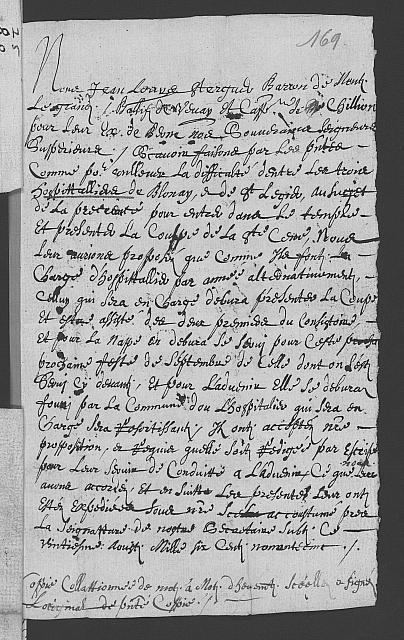 169
Nous Jean Louys Sterguer Barron de Mont
Le grand / Balif de Vevay et Capp.ne de Chillion
pour Leur Ex. de Berne nos Souverains Seigneurs
Supperieurs / Scavoir faisons par Les pntes
Comme po.r ensevelir La difficulte dentre Les trois
hospittalliers de Blonay, & de St Legier, au suget
de La preceance pour entrer dans Le temple
Et presenter La Couppe de La Ste Cene, Nous
Leur aurions propose que comme Ils font La
Charge d'hospittallier par annee alternativement,
Celluy qui sera en Charge debvra presenter La Coupe
Et estre assiste des deux premiers du Consistoire
Et pour La Nape on debvra Se servir pour Ceste
prochaine feste de Septembre de Celle dont on sest
servy Cy devant, Et pour Ladvenir Elle Se debvra
fournir par La Commune dou Lhospitalier qui sera en
Charge sera Ressortissant, Ils ont accepte nre
proposition, et Requis quelle soit Redigee par Escrit
pour Leur Servir de Conduitte a Ladvenir, Ce que nous Leur
avons accorde, Et en Suitte Les presentes Leur ont
Estes Expediees Sous nre Sceau accoustume pres
La Seignature de nostre Secretaire Subt. Ce
Ventiesme Aoust Mille Six Cent nonnante cinq /.
Coppie Collattionnee de mot, a Mot, d'heuement Scellee & signe
L'original de pnte Coppie /.